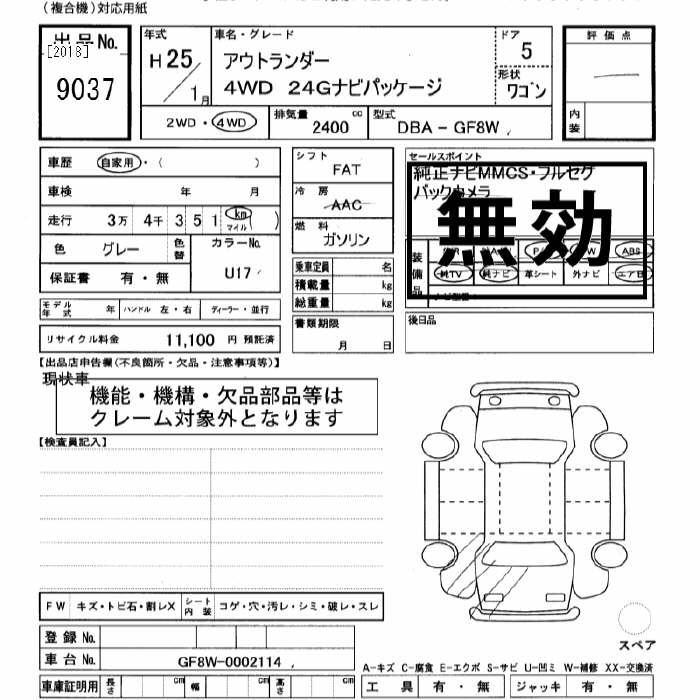 (複合機)対応用紙
出品No.
[2013]
9037
年式
H25
1月
車名・グレード
アウトランダー
4WD 24Gナビパッケージ
ドア
5
形状
ワゴン
評価点
内装
2WD・4WD
排気量 2400 cc
型式 DBA-GF8W
車歴 自家用・( )
車検 年 月
走行 3万 4千 3 5 1 km マイル )
色 グレー 色替
カラーNo.
U17
保証書 有・無
シフト
FAT
冷房
AAC
燃料
ガソリン
セールスポイント
純正ナビMMCS・フルセグ
バックカメラ
無効
装備品
ABS
純TV 純ナビ 革シート 外ナビ エアB
乗車定員 名
積載量 kg
総重量 kg
モデル年式 年 ハンドル 左・右 ディーラー・並行
リサイクル料金 11,100 円 預託済
書類期限
月 日
後日品
【出品店申告欄(不良箇所・欠品・注意事項等)】
現状車
機能・機構・欠品部品等は
クレーム対象外となります
【検査員記入】
FW キズ・トビ石・割レX シート内装 コゲ・穴・汚レ・シミ・破レ・スレ
登録No.
車台No. GF8W-0002114
車庫証明用 長さ cm 幅 cm 高さ cm
スペア
A-キズ C-腐食 E-エクボ S-サビ U-凹ミ W-補修 XX-交換済
工具 有・無 ジャッキ 有・無